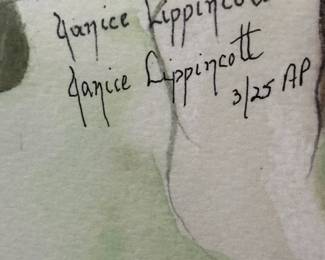 Janice Lippincott
Janice Lippincott
3/25 AP